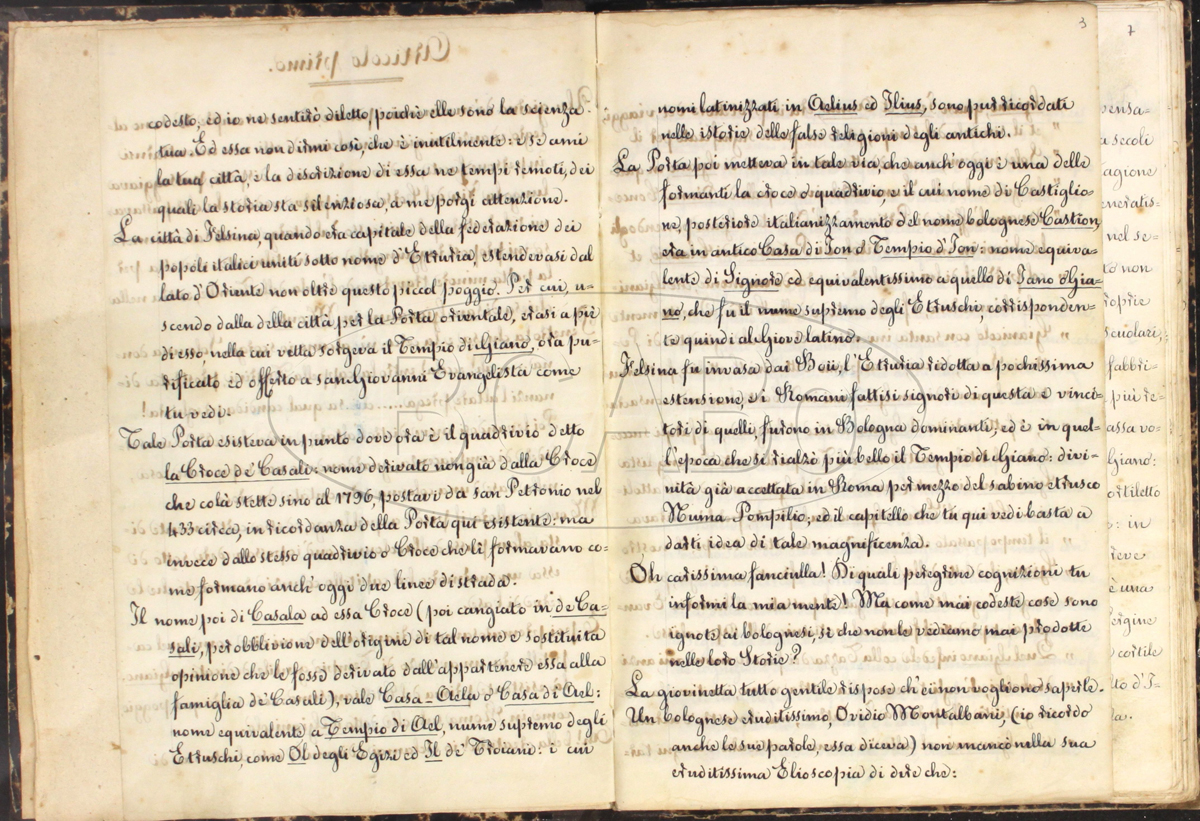 codesto, ed io ne sentirò diletto, poichè elle sono la scienza
tua. Ed essa non dirmi così, che è inutilmente: e se ami
la tua città, e la descrizione di essa ne tempi remoti, dei
quali la storia sta silenziosa, a me porgi attenzione.
La città di Felsina, quando era capitale della federazione dei
popoli italici uniti sotto nome d'Etruria, estendevasi dal
lato d'Oriente non oltre questo piccol poggio. Per cui, u-
scendo dalla della città per la Porta orientale, erasi a piè
di esso, nella cui vetta sorgeva il Tempio di Giano, ora pu-
rificato ed offerto a san Giovanni Evangelista come
tu vedi.
Tale Porta esisteva in punto dove ora è il quadrivio detto
la Croce de' Casali: nome derivato non già dalla Croce
che colà stette sino al 1796, postavi da san Petronio nel
433 circa, in ricordanza della Porta qui esistente: ma
invece dallo stesso quadrivio o Croce che lì formavano co-
me formano anch'oggi due linee di strada.
Il nome poi di Casala ad essa Croce (poi cangiato in de Ca-
sali, per obblivione dell'origine di tal nome e sostituita
opinione che le fosse derivato dall'appartenere essa alla
famiglia de' Casali), vale Casa-Aela o Casa di Ael:
nome equivalente a Tempio di Ael, nume supremo degli
Etruschi, come Ol degli Egizi ed Il de' Troiani: i cui
3
nomi latinizzati in Aelius ed Ilius, sono pur ricordati
nelle istorie delle false religioni degli antichi.
La Porta poi metteva in tale via, che anch'oggi è una delle
formanti la croce o quadrivio, e il cui nome di Castiglio-
ne, posteriore italianizzamento del nome bolognese Castion,
era in antico Casa di Ion o Tempio d'Ion: nome equiva-
lente di Signore ed equivalentissimo a quello di Iano o Gia-
no, che fu il nume supremo degli Etruschi, corrisponden-
te quindi al Giove latino.
Felsina fu invasa dai Boii, l'Etruria ridotta a pochissima
estensione, e i Romani fattisi signori di questa e vinci-
tori di quelli, furono in Bologna dominanti; ed è in quel-
l'epoca che si rialzò più bello il Tempio di Giano: divi-
nità già accettata in Roma per mezzo del sabino etrusco
Numa Pompilio; ed il capitello che tu qui vedi basta a
darti idea di tale magnificenza.
Oh carissima fanciulla! Di quali peregrine cognizioni tu
informi la mia mente! Ma come mai codeste cose sono
ignote ai bolognesi, sì che non le vediamo mai prodotte
nelle loro Storie?
La giovinetta tutto gentile rispose ch'ei non vogliono saperle.
Un bolognese eruditissimo, Ovidio Montalbani, (io ricordo
anche le sue parole, essa diceva) non mancò nella sua
eruditissima Elioscopia di dire che:
7